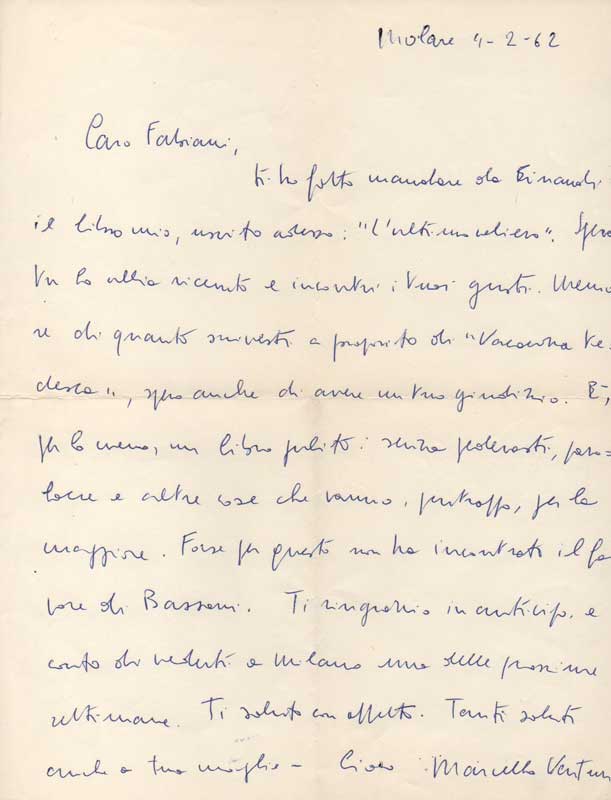 Molare 4-2-62
Caro Fabiani,
ti ho fatto mandare da Einaudi
il libro mio, uscito adesso: "L'ultimo veliero". Spero
tu lo abbia ricevuto e incontri i tuoi gusti. Memo
re di quanto scrivesti a proposito di "Vacanza te
desca", spero anche di avere un tuo giudizio. È,
per lo meno, un libro pulito: senza pederasti, paro=
lacce e altre cose che vanno, purtroppo, per la
maggiore. Forse per questo non ha incontrato il fa
vore di Bassani. Ti ringrazio in anticipo, e
conto di vederti a Milano una delle prossime
settimane. Ti saluto con affetto. Tanti saluti
anche a tua moglie - Ciao Marcello Venturi